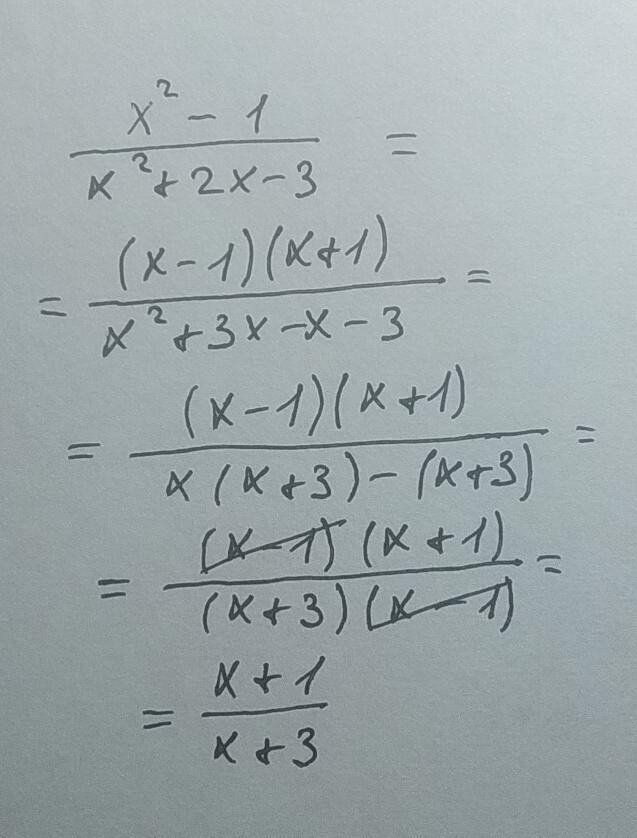 x² - 1
x² + 2x - 3 =
= (x - 1)(x + 1)
x² + 3x - x - 3 =
= (x - 1)(x + 1)
x(x + 3) - (x + 3) =
= (x - 1)(x + 1)
(x + 3)(x - 1) =
= x + 1
x + 3